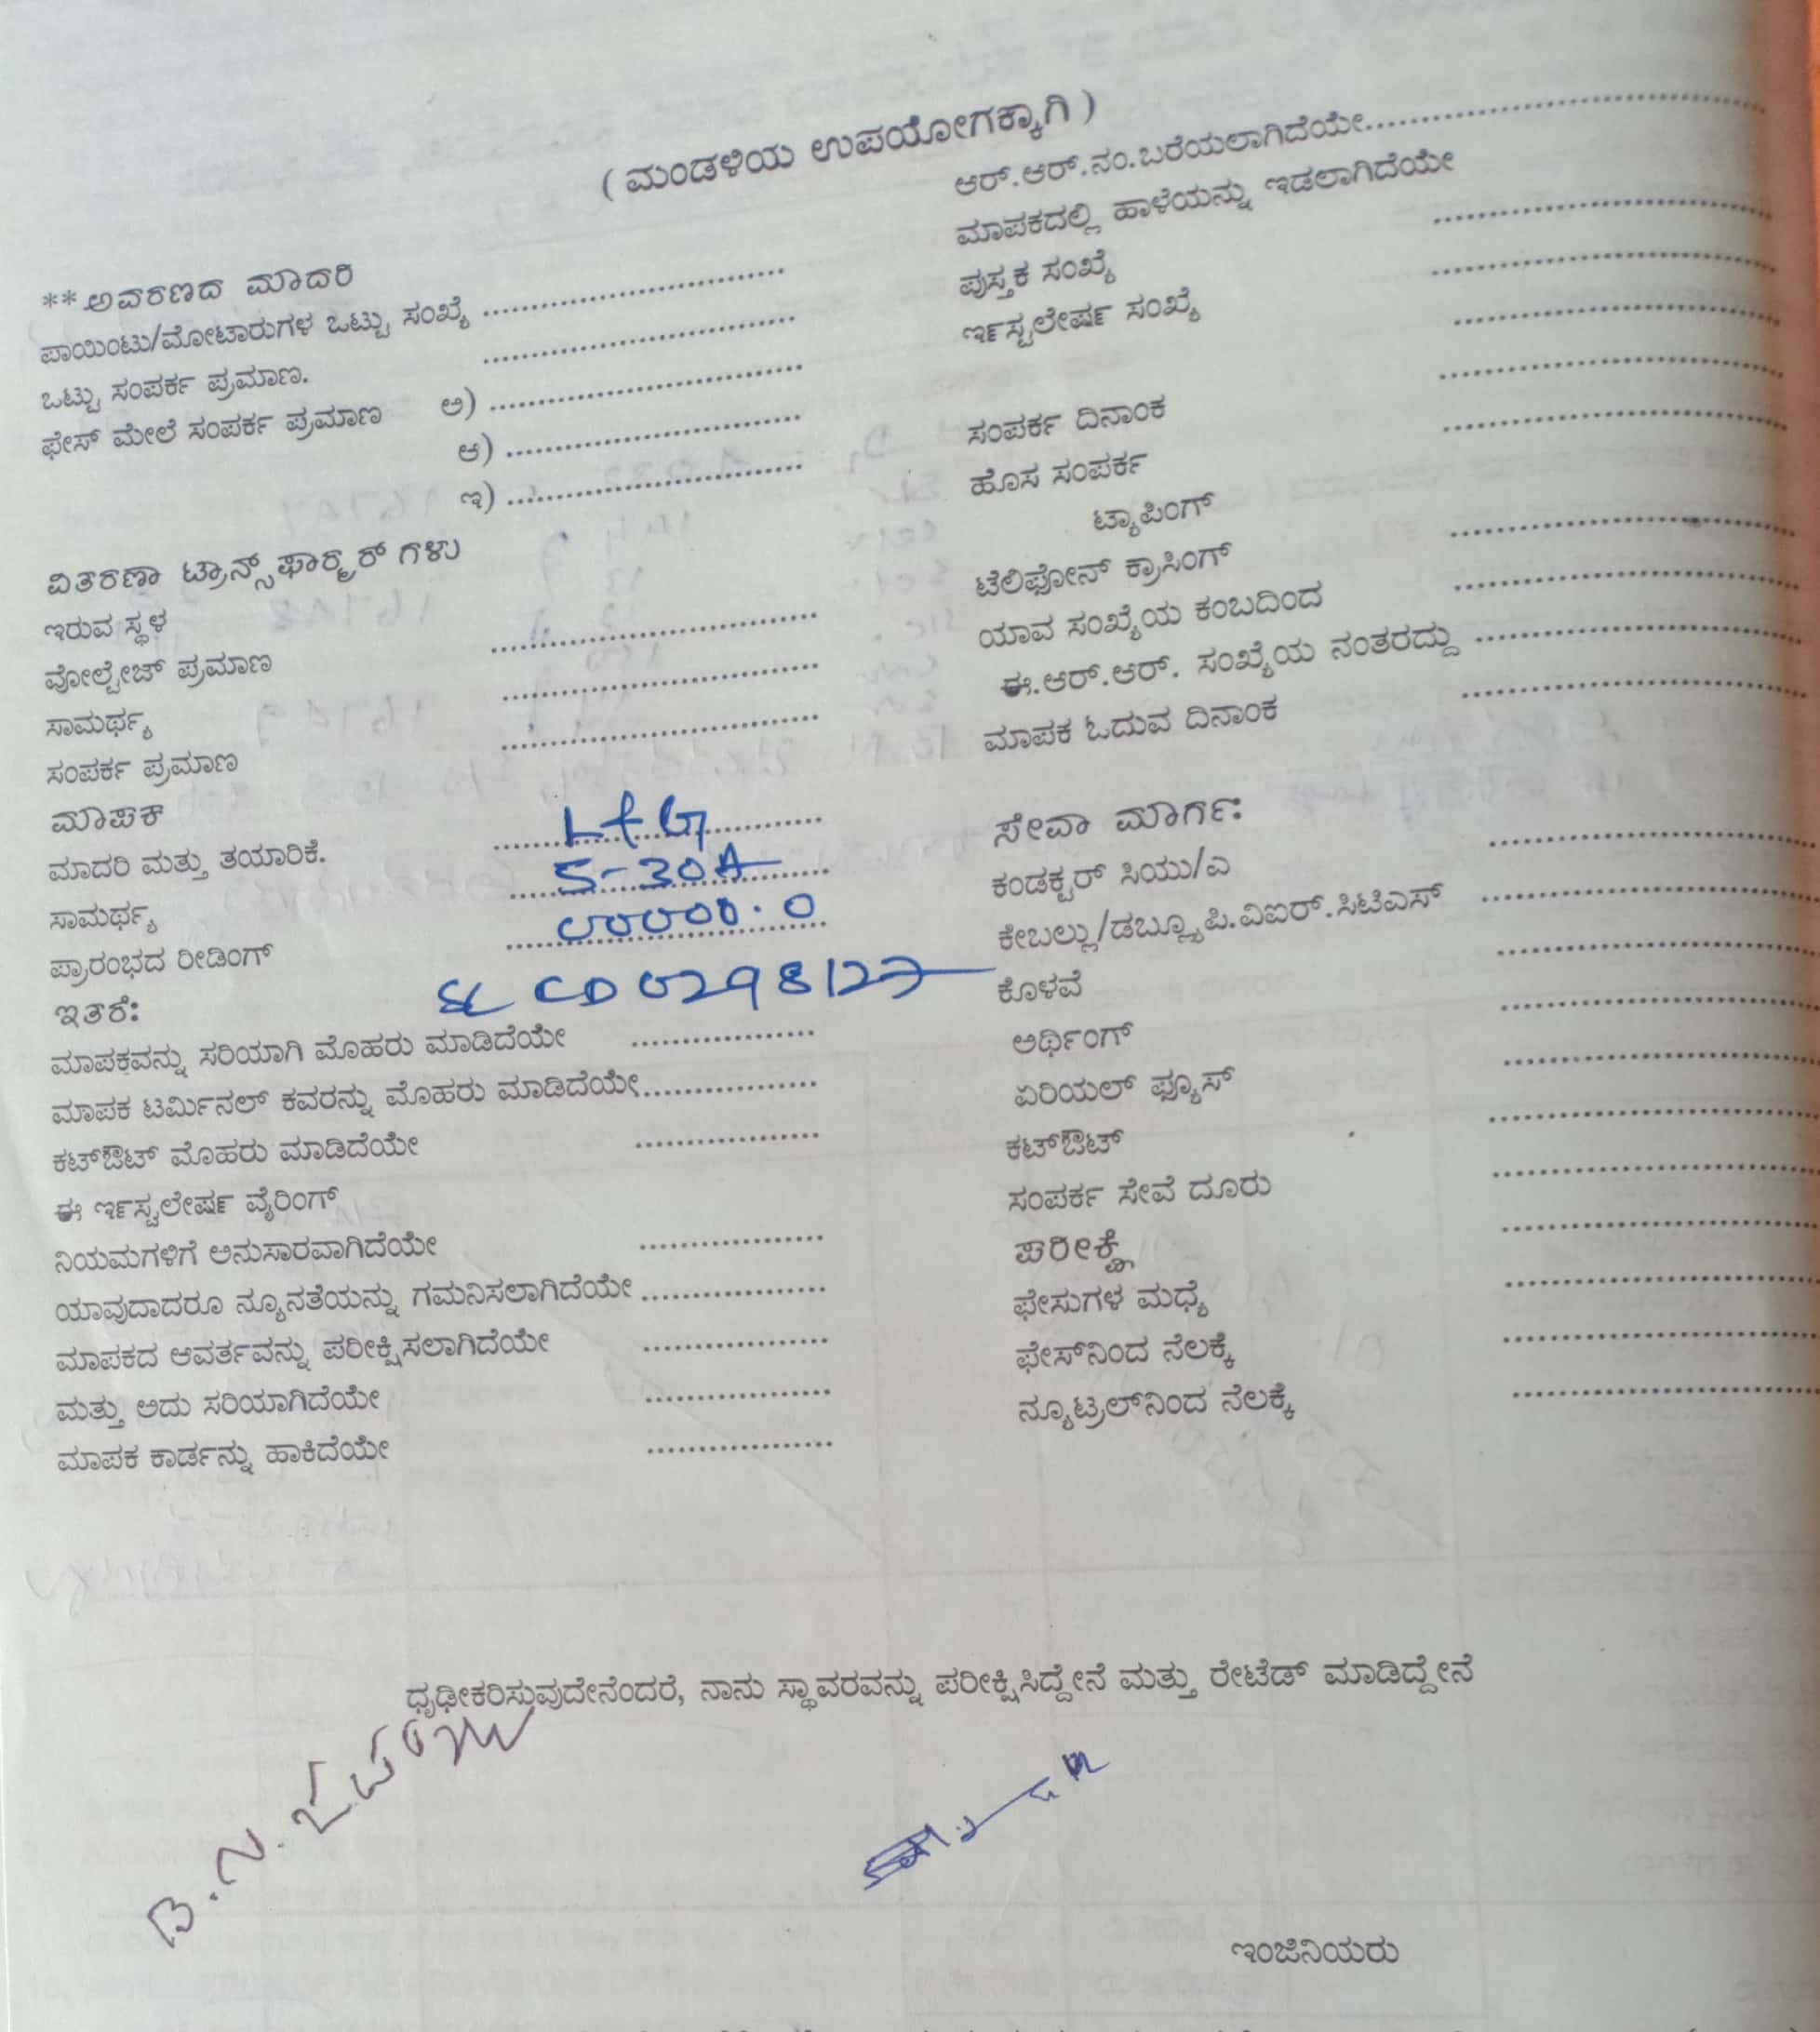 ( ಮಂಡಳಿಯ ಉಪಯೋಗಕ್ಕಾಗಿ )
**ಅವರಣದ ಮಾದರಿ
ಪಾಯಿಂಟು/ಮೋಟಾರುಗಳ ಒಟ್ಟು ಸಂಖ್ಯೆ ..............................
ಒಟ್ಟು ಸಂಪರ್ಕ ಪ್ರಮಾಣ. ..............................
ಫೇಸ್ ಮೇಲೆ ಸಂಪರ್ಕ ಪ್ರಮಾಣ ಅ) ..............................
ಆ) ..............................
ಇ) ..............................
ವಿತರಣಾ ಟ್ರಾನ್ಸ್‌ಫಾರ್‍ಮ್ರರ್ ಗಳು
ಇರುವ ಸ್ಥಳ
ವೋಲ್ಟೇಜ್ ಪ್ರಮಾಣ ..............................
ಸಾಮರ್ಥ್ಯ ..............................
ಸಂಪರ್ಕ ಪ್ರಮಾಣ ..............................
ಮಾಪಕ
ಮಾದರಿ ಮತ್ತು ತಯಾರಿಕೆ. L+G
ಸಾಮರ್ಥ್ಯ 5-30A
ಪ್ರಾರಂಭದ ರೀಡಿಂಗ್ 00000.0
ಇತರೆ: SL CD0298127
ಮಾಪಕವನ್ನು ಸರಿಯಾಗಿ ಮೊಹರು ಮಾಡಿದೆಯೇ ..................
ಮಾಪಕ ಟರ್ಮಿನಲ್ ಕವರನ್ನು ಮೊಹರು ಮಾಡಿದೆಯೇ..................
ಕಟ್‌ಔಟ್ ಮೊಹರು ಮಾಡಿದೆಯೇ ..................
ಈ ಇನ್‍ಸ್ಟಲೇಷನ್ ವೈರಿಂಗ್
ನಿಯಮಗಳಿಗೆ ಅನುಸಾರವಾಗಿದೆಯೇ ..................
ಯಾವುದಾದರೂ ನ್ಯೂನತೆಯನ್ನು ಗಮನಿಸಲಾಗಿದೆಯೇ ..................
ಮಾಪಕದ ಆವರ್ತವನ್ನು ಪರೀಕ್ಷಿಸಲಾಗಿದೆಯೇ ..................
ಮತ್ತು ಅದು ಸರಿಯಾಗಿದೆಯೇ ..................
ಮಾಪಕ ಕಾರ್ಡನ್ನು ಹಾಕಿದೆಯೇ ..................
ಆರ್.ಆರ್.ನಂ.ಬರೆಯಲಾಗಿದೆಯೇ..............................
ಮಾಪಕದಲ್ಲಿ ಹಾಳೆಯನ್ನು ಇಡಲಾಗಿದೆಯೇ ..............................
ಪುಸ್ತಕ ಸಂಖ್ಯೆ ..............................
ಇನ್‍ಸ್ಟಲೇಷನ್ ಸಂಖ್ಯೆ ..............................
ಸಂಪರ್ಕ ದಿನಾಂಕ ..............................
ಹೊಸ ಸಂಪರ್ಕ ..............................
ಟ್ಯಾಪಿಂಗ್
ಟೆಲಿಫೋನ್ ಕ್ರಾಸಿಂಗ್ ..............................
ಯಾವ ಸಂಖ್ಯೆಯ ಕಂಬದಿಂದ ..............................
ಈ.ಆರ್.ಆರ್. ಸಂಖ್ಯೆಯ ನಂತರದ್ದು ..............................
ಮಾಪಕ ಓದುವ ದಿನಾಂಕ ..............................
ಸೇವಾ ಮಾರ್ಗ:
ಕಂಡಕ್ಟರ್ ಸಿಯು/ಎ ..............................
ಕೇಬಲ್ಲು/ಡಬ್ಲ್ಯೂಪಿ.ವಿಐರ್.ಸಿಟಿಎಸ್ ..............................
ಕೊಳವೆ ..............................
ಅರ್ಥಿಂಗ್ ..............................
ಏರಿಯಲ್ ಫ್ಯೂಸ್ ..............................
ಕಟ್‌ಔಟ್ ..............................
ಸಂಪರ್ಕ ಸೇವೆ ದೂರು ..............................
ಪರೀಕ್ಷೆ ..............................
ಫೇಸುಗಳ ಮಧ್ಯೆ ..............................
ಫೇಸ್‌ನಿಂದ ನೆಲಕ್ಕೆ ..............................
ನ್ಯೂಟ್ರಲ್‌ನಿಂದ ನೆಲಕ್ಕೆ ..............................
ಧೃಢೀಕರಿಸುವುದೇನೆಂದರೆ, ನಾನು ಸ್ಥಾವರವನ್ನು ಪರೀಕ್ಷಿಸಿದ್ದೇನೆ ಮತ್ತು ರೇಟೆಡ್ ಮಾಡಿದ್ದೇನೆ
ಇಂಜಿನಿಯರು